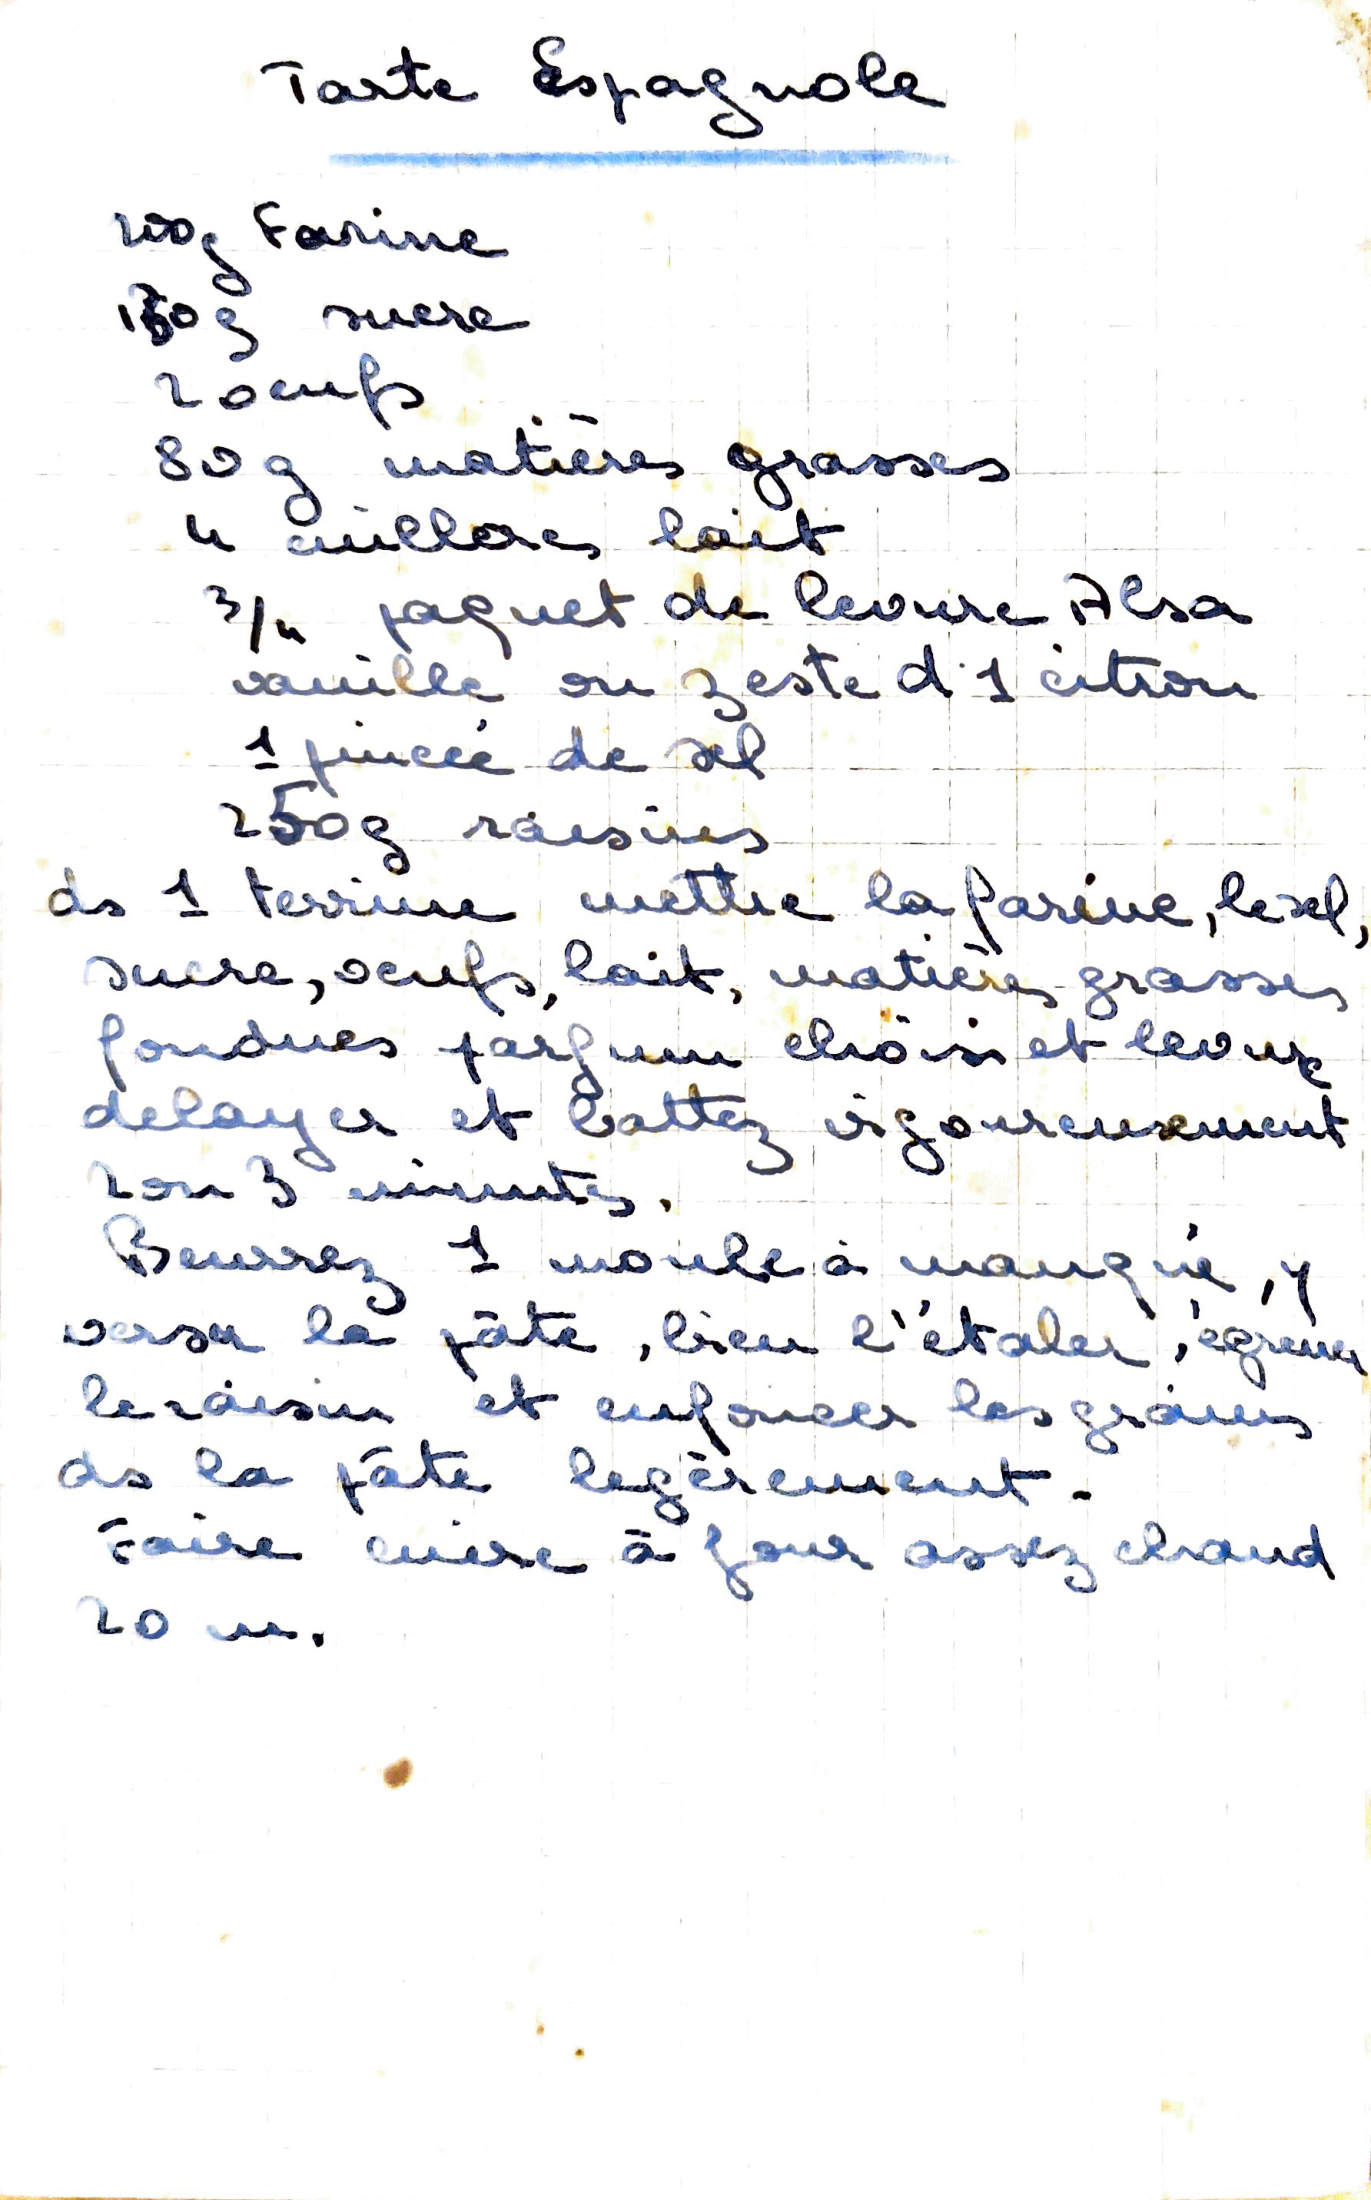 Tarte Espagnole
200g Farine
130g sucre
2 oeufs
80g matières grasses
4 cuillères lait
3/4 paquet de levure Alsa
vanille ou zeste d'1 citron
1 pincée de sel
250g raisins
ds 1 terrine mettre la farine, le sel,
sucre, oeufs, lait, matières grasses
fondues parfum choisi et levure
delayer et battez vigoureusement
2 ou 3 minutes.
Beurrez 1 moule à manqué, y
verser la pâte, bien l'étaler, égrener
le raisin et enfoncer les grains
ds la pâte legèrement.
Faire cuire à four assez chaud
20 m.